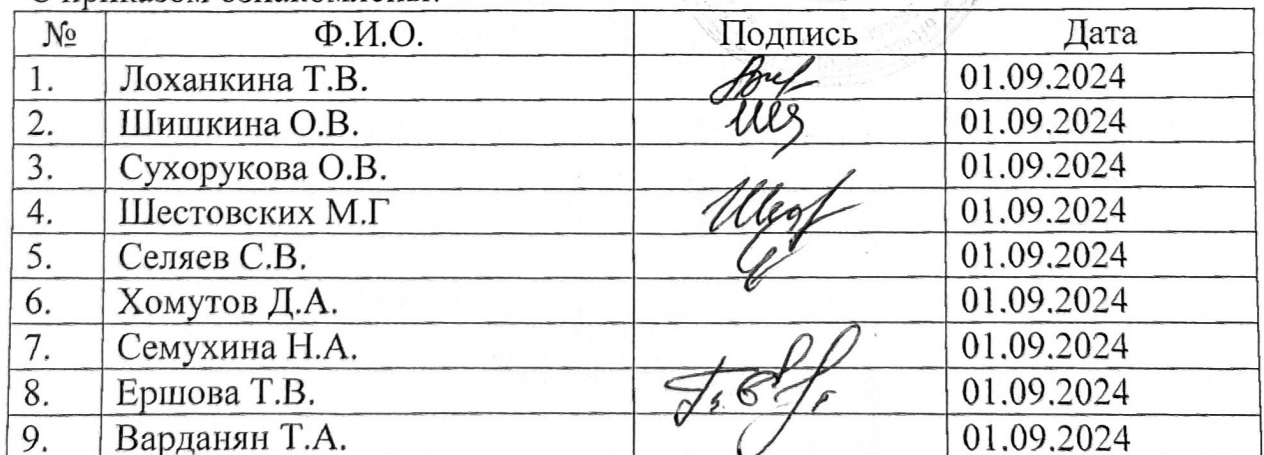 С приказом ознакомлены:
№ Ф.И.О. Подпись Дата
1. Лоханкина Т.В. 01.09.2024
2. Шишкина О.В. 01.09.2024
3. Сухорукова О.В. 01.09.2024
4. Шестовских М.Г 01.09.2024
5. Селяев С.В. 01.09.2024
6. Хомутов Д.А. 01.09.2024
7. Семухина Н.А. 01.09.2024
8. Ершова Т.В. 01.09.2024
9. Варданян Т.А. 01.09.2024